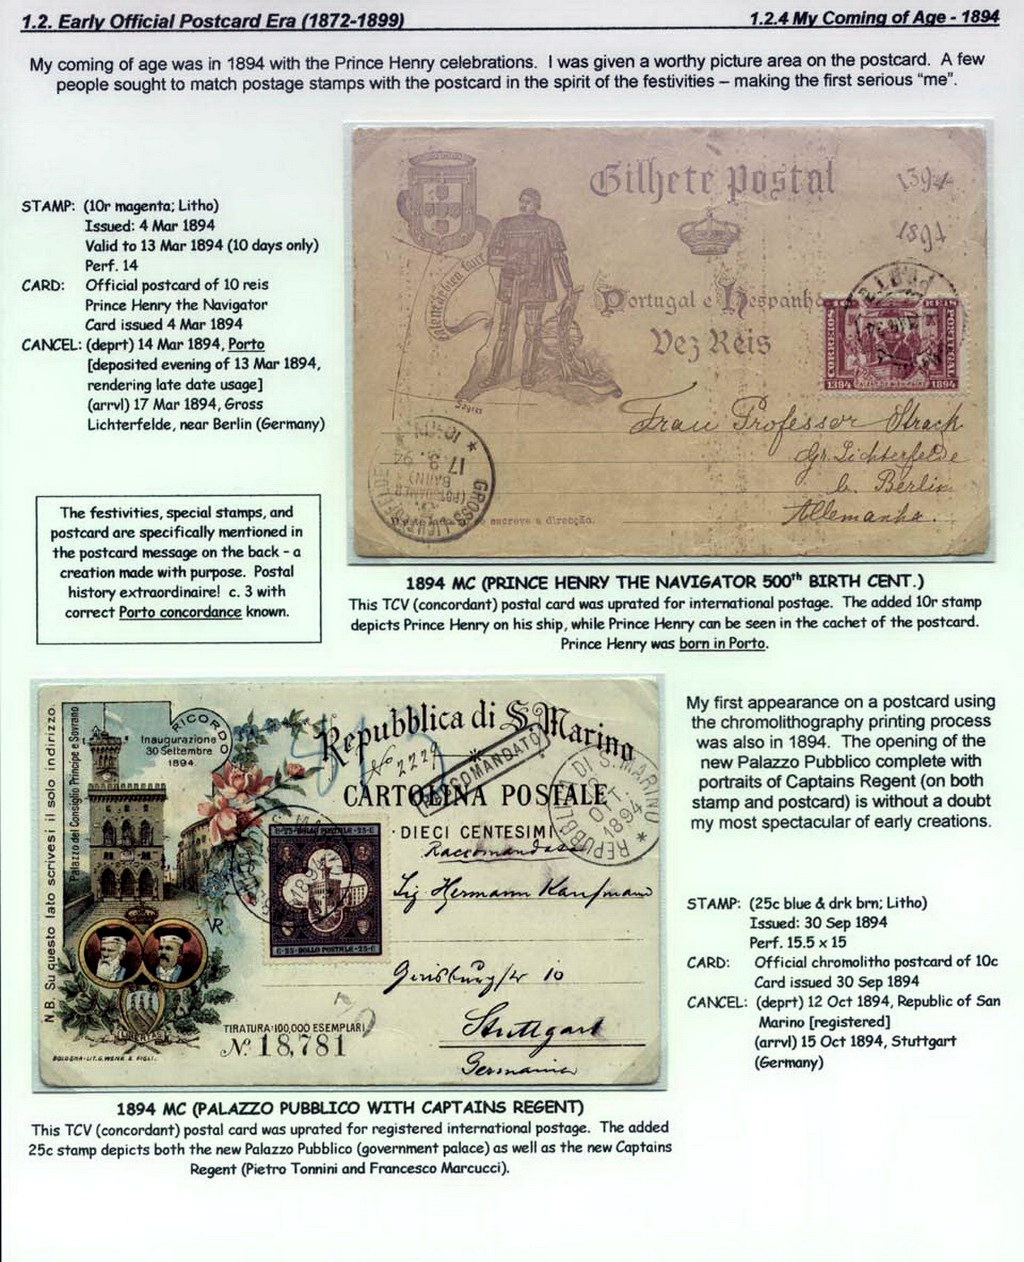 1.2. Early Official Postcard Era (1872-1899)
1.2.4 My Coming of Age - 1894
My coming of age was in 1894 with the Prince Henry celebrations. I was given a worthy picture area on the postcard. A few
people sought to match postage stamps with the postcard in the spirit of the festivities – making the first serious "me".
STAMP: (10r magenta; Litho)
Issued: 4 Mar 1894
Valid to 13 Mar 1894 (10 days only)
Perf. 14
CARD: Official postcard of 10 reis
Prince Henry the Navigator
Card issued 4 Mar 1894
CANCEL: (deprt) 14 Mar 1894, Porto
[deposited evening of 13 Mar 1894,
rendering late date usage]
(arrvl) 17 Mar 1894, Gross
Lichterfelde, near Berlin (Germany)
The festivities, special stamps, and
postcard are specifically mentioned in
the postcard message on the back – a
creation made with purpose. Postal
history extraordinaire! c. 3 with
correct Porto concordance known.
Bilhete postal
1394
1894
Portugal e Hespanha
Dez Reis
CORREIOS 10 REIS PORTUGAL
1394 1894
Sagres
Frau Professor Strack
Gr. Lichterfelde
b. Berlin
Allemanha.
GROSS LICHTERFELDE
(POTSDAMER BAHN)
17.3.94
10-11N
escreve a direcção.
1894 MC (PRINCE HENRY THE NAVIGATOR 500th BIRTH CENT.)
This TCV (concordant) postal card was uprated for international postage. The added 10r stamp
depicts Prince Henry on his ship, while Prince Henry can be seen in the cachet of the postcard.
Prince Henry was born in Porto.
N.B. Su questo lato scrivesi il solo indirizzo.
Palazzo del Consiglio Principe e Sovrano
RICORDO
Inaugurazione
30 Settembre
1894
Repubblica di S. Marino
No 2229
RACOMANDATO
CARTOLINA POSTALE
REPUBBLICA DI S. MARINO
OTT. 1894
DIECI CENTESIMI
Raccomandata
C-25-BOLLO POSTALE-25-C
C-25-BOLLO POSTALE-25-C
Sig. Hermann Kaufmann
10
Stuttgart
Germania
LIBERTAS
TIRATURA 100,000 ESEMPLARI
No. 18,781
BOLOGNA-LIT. G. WENK & FIGLI.
1894 MC (PALAZZO PUBBLICO WITH CAPTAINS REGENT)
This TCV (concordant) postal card was uprated for registered international postage. The added
25c stamp depicts both the new Palazzo Pubblico (government palace) as well as the new Captains
Regent (Pietro Tonnini and Francesco Marcucci).
My first appearance on a postcard using
the chromolithography printing process
was also in 1894. The opening of the
new Palazzo Pubblico complete with
portraits of Captains Regent (on both
stamp and postcard) is without a doubt
my most spectacular of early creations.
STAMP: (25c blue & drk brn; Litho)
Issued: 30 Sep 1894
Perf. 15.5 x 15
CARD: Official chromolitho postcard of 10c
Card issued 30 Sep 1894
CANCEL: (deprt) 12 Oct 1894, Republic of San
Marino [registered]
(arrvl) 15 Oct 1894, Stuttgart
(Germany)